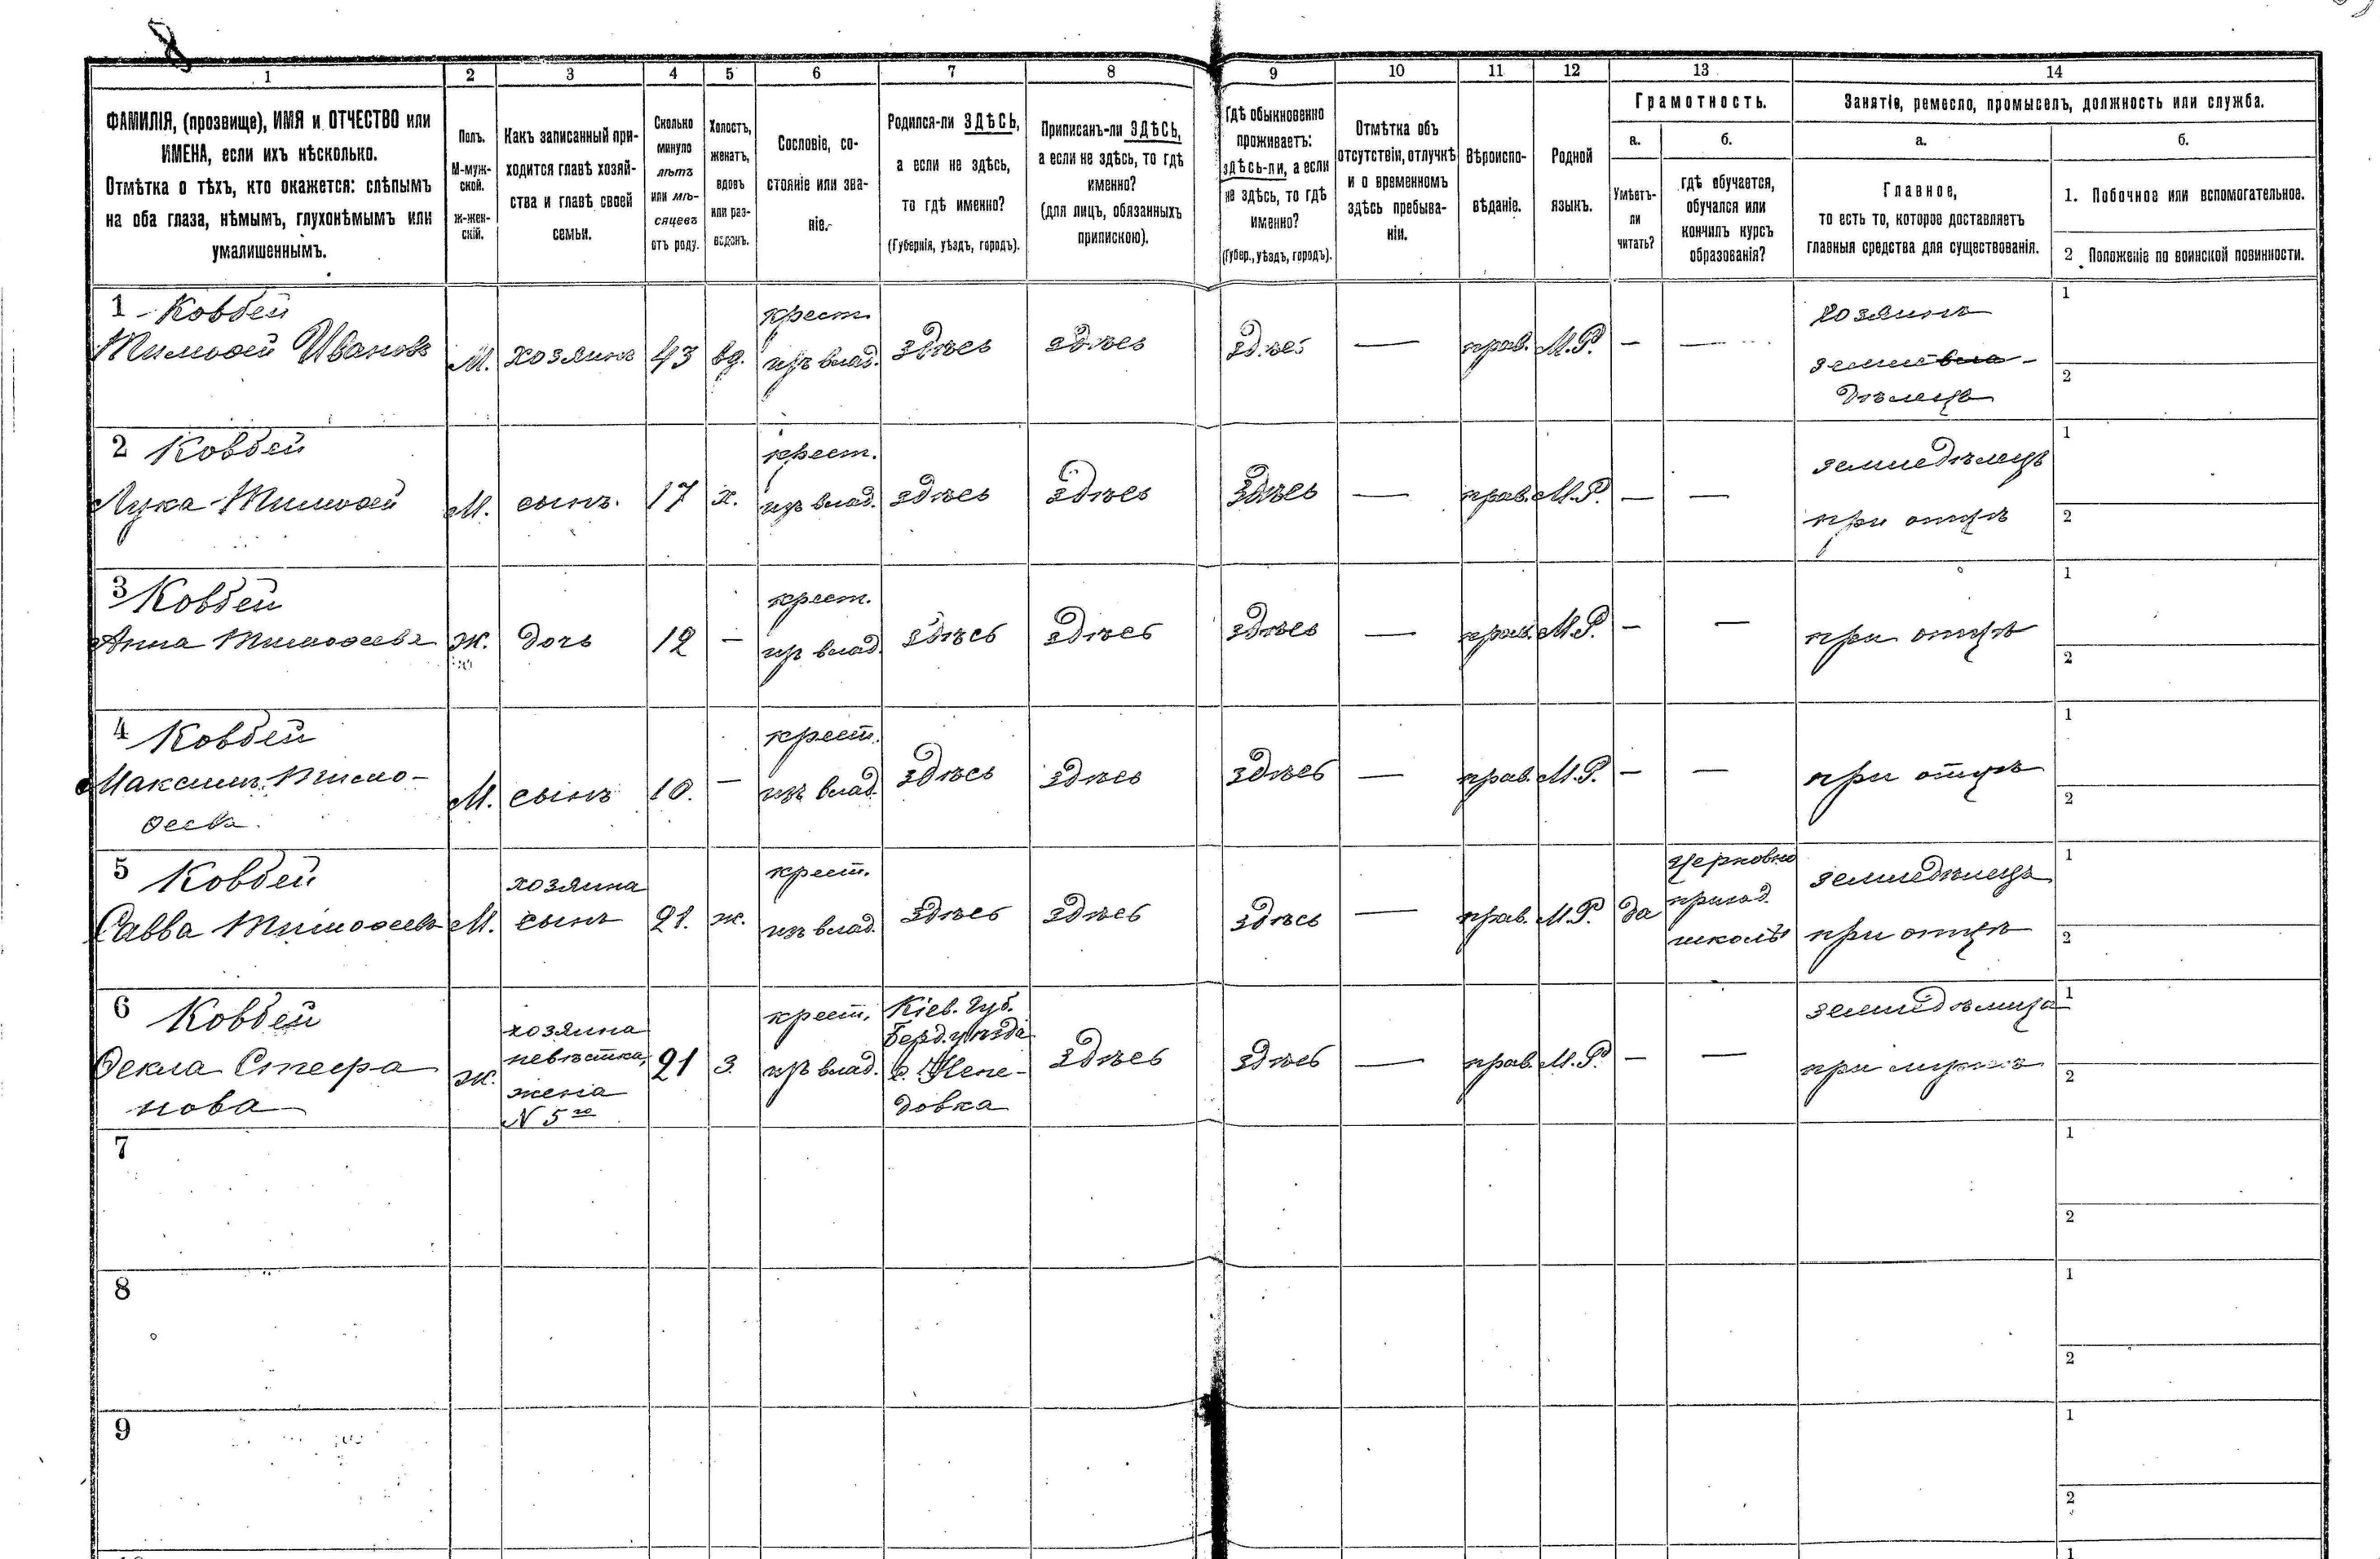 8
1 2 3 4 5 6 7 8 9 10 11 12 13 14
ФАМИЛІЯ, (прозвище), ИМЯ и ОТЧЕСТВО или
ИМЕНА, если ихъ нѣсколько.
Отмѣтка о тѣхъ, кто окажется: слѣпымъ
на оба глаза, нѣмымъ, глухонѣмымъ или
умалишеннымъ.
Полъ.
М-муж-
ской.
ж-жен-
скій.
Какъ записанный при-
ходится главѣ хозяй-
ства и главѣ своей
семьи.
Сколько
минуло
лѣтъ
или мѣ-
сяцевъ
отъ роду.
Холостъ,
женатъ,
вдовъ
или раз-
веденъ.
Сословіе, со-
стояніе или зва-
ніе.
Родился-ли ЗДѢСЬ,
а если не здѣсь,
то гдѣ именно?
(Губернія, уѣздъ, городъ).
Приписанъ-ли ЗДѢСЬ,
а если не здѣсь, то гдѣ
именно?
(для лицъ, обязанныхъ
припискою).
Гдѣ обыкновенно
проживаетъ:
здѣсь-ли, а если
не здѣсь, то гдѣ
именно?
(Губер., уѣздъ, городъ).
Отмѣтка объ
отсутствіи, отлучкѣ
и о временномъ
здѣсь пребыва-
ніи.
Вѣроиспо-
вѣданіе.
Родной
языкъ.
Грамотность.
а.
Умѣетъ-
ли
читать?
б.
гдѣ обучается,
обучался или
кончилъ курсъ
образованія?
Занятіе, ремесло, промыселъ, должность или служба.
а.
Главное,
то есть то, которое доставляетъ
главныя средства для существованія.
б.
1. Побочное или вспомогательное.
2. Положеніе по воинской повинности.
1 Ковбей
Тимоѳей Ивановъ
М.
хозяинъ
43
вд.
крест.
изъ влад.
здѣсь
здѣсь
здѣсь
—
прав.
М.Р.
—
—
хозяинъ
земле
дѣлецъ
1
2
2 Ковбей
Лука Тимоѳей
М.
сынъ.
17
х.
крест.
изъ влад.
здѣсь
здѣсь
здѣсь
—
прав.
М.Р.
—
—
земледѣлецъ
при отцѣ
1
2
3 Ковбей
Анна Тимоѳеева
Ж.
дочь
12
—
крест.
изъ влад.
здѣсь
здѣсь
здѣсь
—
прав.
М.Р.
—
—
при отцѣ
1
2
4 Ковбей
Максимъ Тимо-
ѳеевъ
М.
сынъ
10.
—
крест.
изъ влад.
здѣсь
здѣсь
здѣсь
—
прав.
М.Р.
—
—
при отцѣ
1
2
5 Ковбей
Савва Тимоѳеевъ
М.
хозяина
сынъ
21.
ж.
крест.
изъ влад.
здѣсь
здѣсь
здѣсь
—
прав.
М.Р.
да
церковно
приход.
школѣ
земледѣлецъ
при отцѣ
1
2
6 Ковбей
Ѳекла Стефа
нова
Ж.
хозяина
невѣстка,
жена
N 5го
21
з.
крест.
изъ влад.
Кіев. Губ.
Берд. уѣзда
с. Непе-
довка
здѣсь
здѣсь
—
прав.
М.Р.
—
—
земледѣлица
при мужѣ
1
2
7
1
2
8
1
2
9
1
2
1